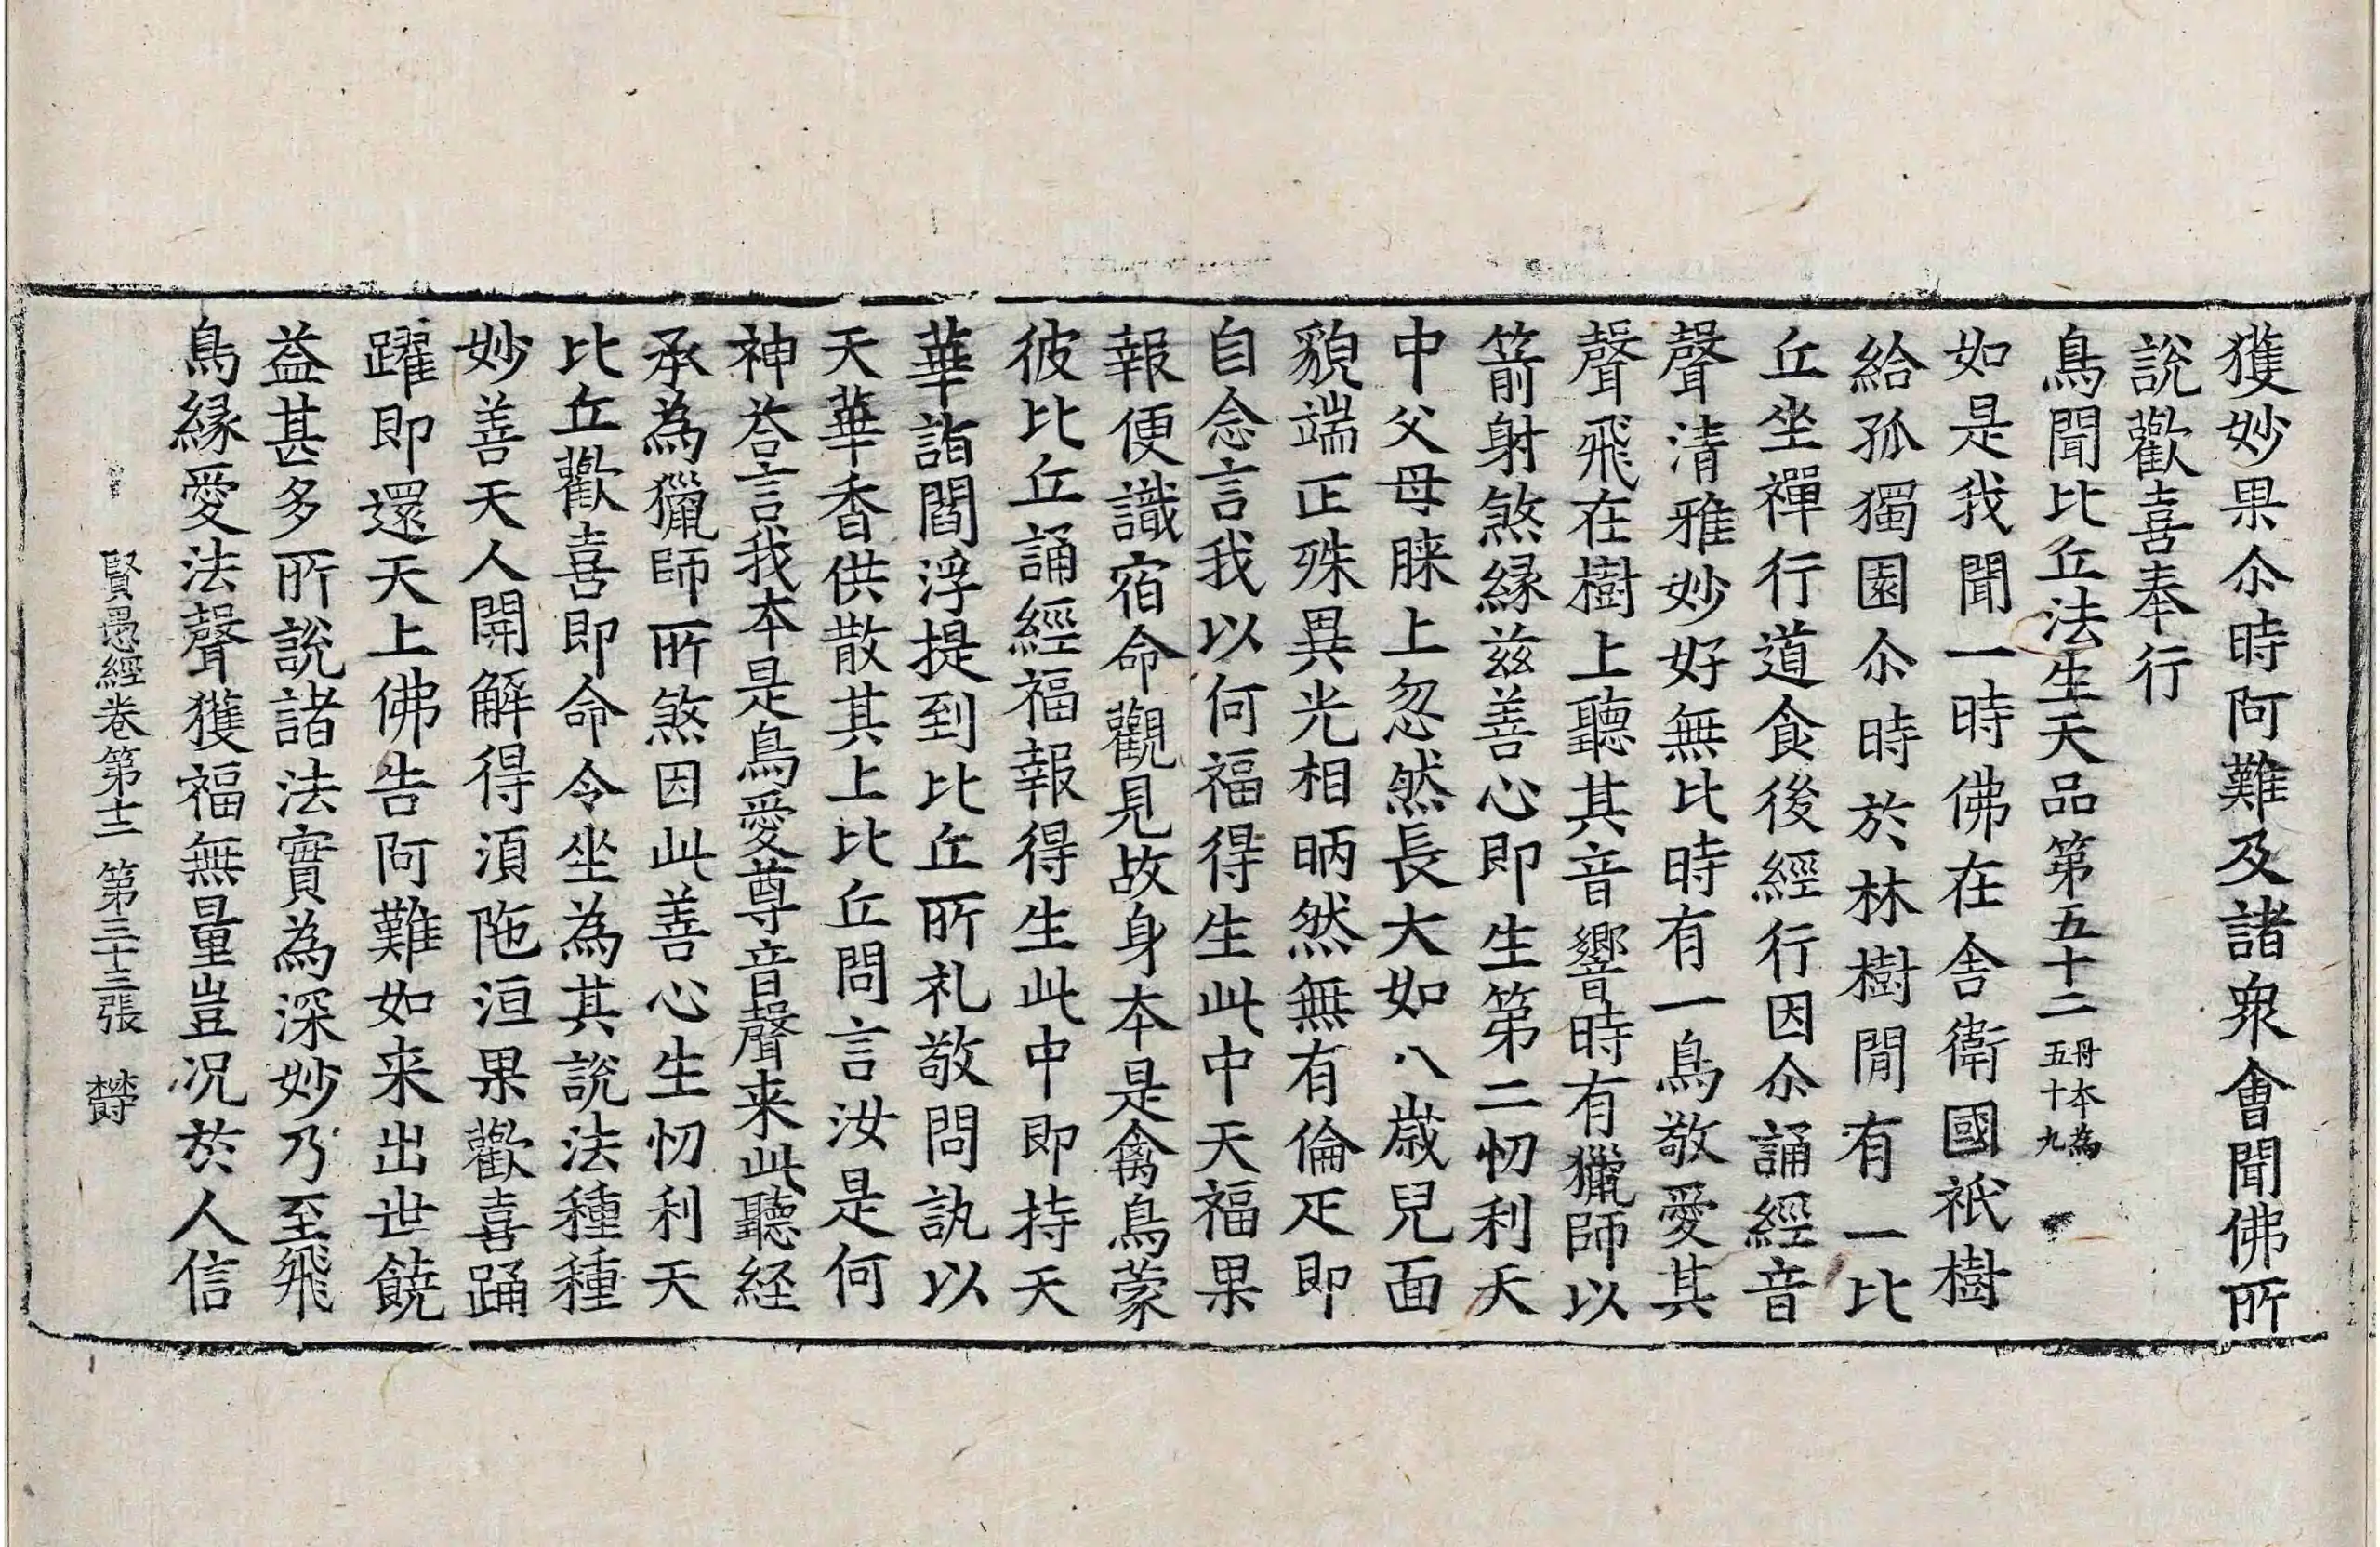 獲妙果尒時阿難及諸衆會聞佛所
說歡喜奉行
鳥聞比丘法生天品第五十二 丹本為五十九
如是我聞一時佛在舎衛國祇樹
給孤獨園尒時於林樹閒有一比
丘坐禪行道食後經行因尒誦經音
聲清雅妙好無比時有一鳥敬愛其
聲飛在樹上聽其音響時有獵師以
箭射煞緣兹善心即生第二忉利天
中父母脨上忽然長大如八歳兒面
貌端正殊異光相昞然無有倫疋即
自念言我以何福得生此中天福果
報便識宿命觀見故身本是禽鳥蒙
彼比丘誦經福報得生此中即持天
華詣閻浮提到比丘所礼敬問訊以
天華香供散其上比丘問言汝是何
神荅言我本是鳥愛尊音聲来此聽経
承為獵師所煞因此善心生忉利天
比丘歡喜即命令坐為其說法種種
妙善天人開解得湏陁洹果歡喜踊
躍即還天上佛告阿難如来出世饒
益甚多所說諸法實為深妙乃至飛
鳥緣愛法聲獲福無量豈况於人信
賢愚經卷第十二 第三十三張 欝